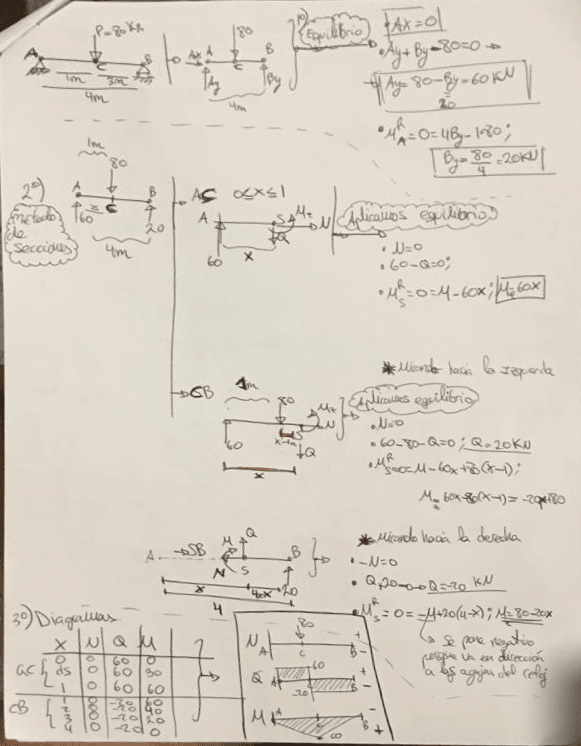 P=80kN
A
C
B
1m
3m
4m
Ax
A
80
B
Ay
C
By
4m
1º) Equilibrio
Ax=0
Ay+By-80=0
Ay=80-By=60KN
20
M_A^R=0=4By-1·80;
By=80/4=20KN
2º) Método de Secciones
1m
80
A
x
C
B
60
20
4m
AC 0≤x≤1
A
S
Mz
N
Q
60
x
Aplicamos equilibrio
• N=0
• 60-Q=0;
• M_S^R=0=M-60x; Mz=60x
* Mirando hacia la izquierda
CB
1m
80
Mz
N
60
x-1m
Q
x
Aplicamos equilibrio
• N=0
• 60-80-Q=0; Q=20KN
• M_S^R=0=M-60x+80(x-1);
Mz=60x-80(x-1)=-20x+80
* Mirando hacia la derecha
A
SB
M
Q
B
N
S
x
4-x
20
4
• -N=0
• Q+20=0→Q=-20 KN
• M_S^R=0=-M+20(4-x); M=80-20x
se pone negativo
porque va en dirección
a las agujas del reloj
3º) Diagramas
X N Q M
AC
0 0 60 0
0,5 0 60 30
1 0 60 60
CB
1 0 -20 60
2 0 -20 40
3 0 -20 20
4 0 -20 0
N
A
80
C
B
+
-
Q
A
60
-20
B
+
-
M
A
60
B
-
+